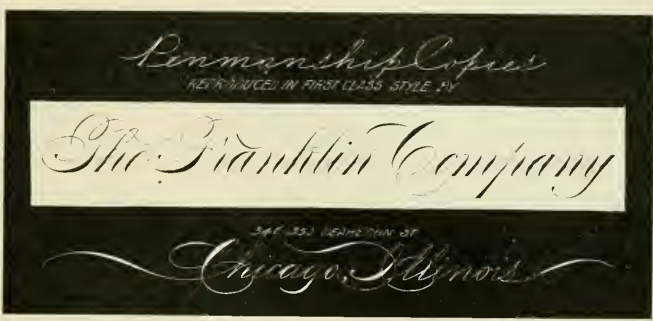 Penmanship Copies
REPRODUCED IN FIRST CLASS STYLE BY
The Franklin Company
DEARBORN ST
Chicago, Illinois